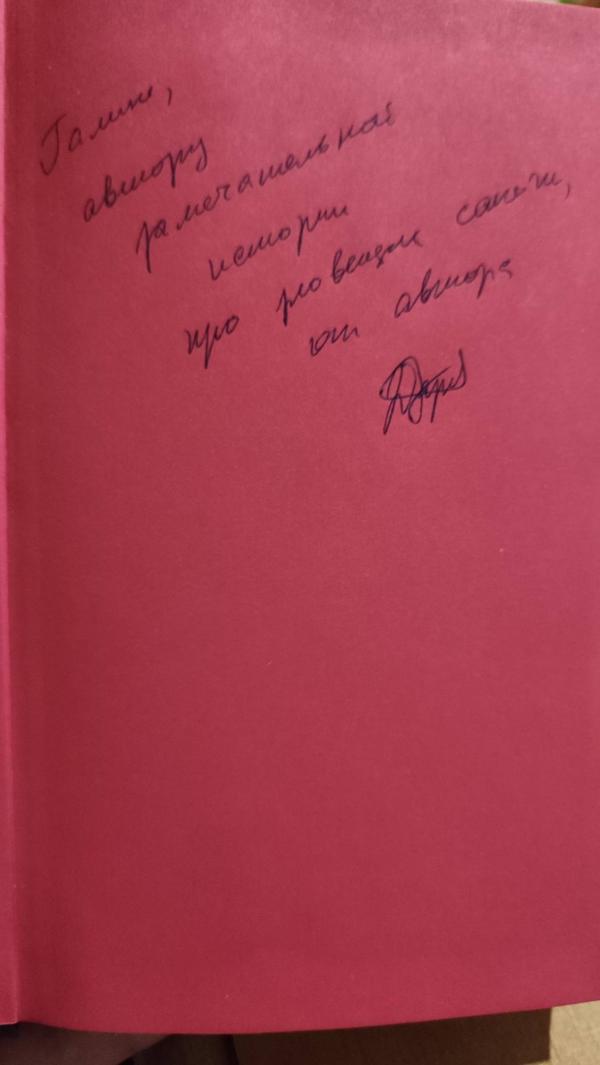 Галине,
автору
замечательной
истории
про зловещие сапоги,
от автора